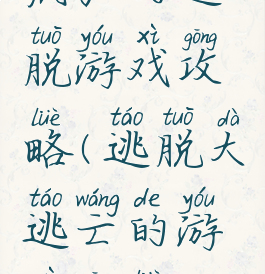 tuō yóu xì gōng
脱游戏攻
lüè táo tuō dà
略(逃脱大
táo wáng de yóu
逃亡的游